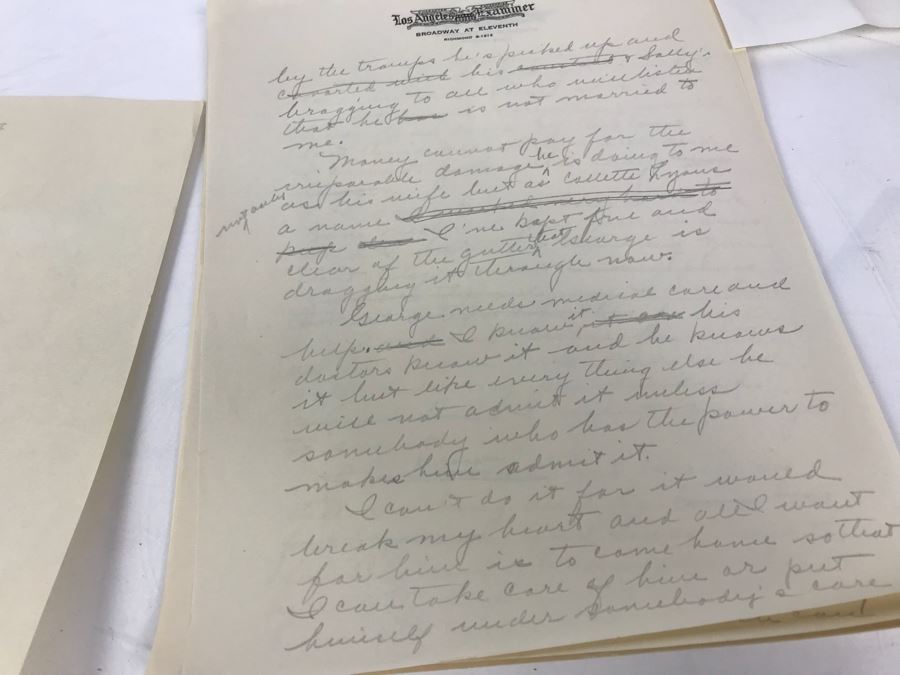 Los Angeles Examiner
BROADWAY AT ELEVENTH
RICHMOND
by the tramps he's picked up and
consorted with his & Sally's
bragging to all who will listen
that he has is not married to
me.
Money cannot pay for the
irreparable damage he is doing to me
not only as his wife but as Collette Lyons
a name
keep I've kept fine and
clear of the gutter that George is
dragging it through now.
George needs medical care and
help. and I know it, his
doctors know it and he knows
it but like every thing else he
will not admit it unless
somebody who has the power to
makes him admit it.
I can't do it for it would
break my heart and all I want
for him is to come home so that
I can take care of him or put
himself under somebody's care